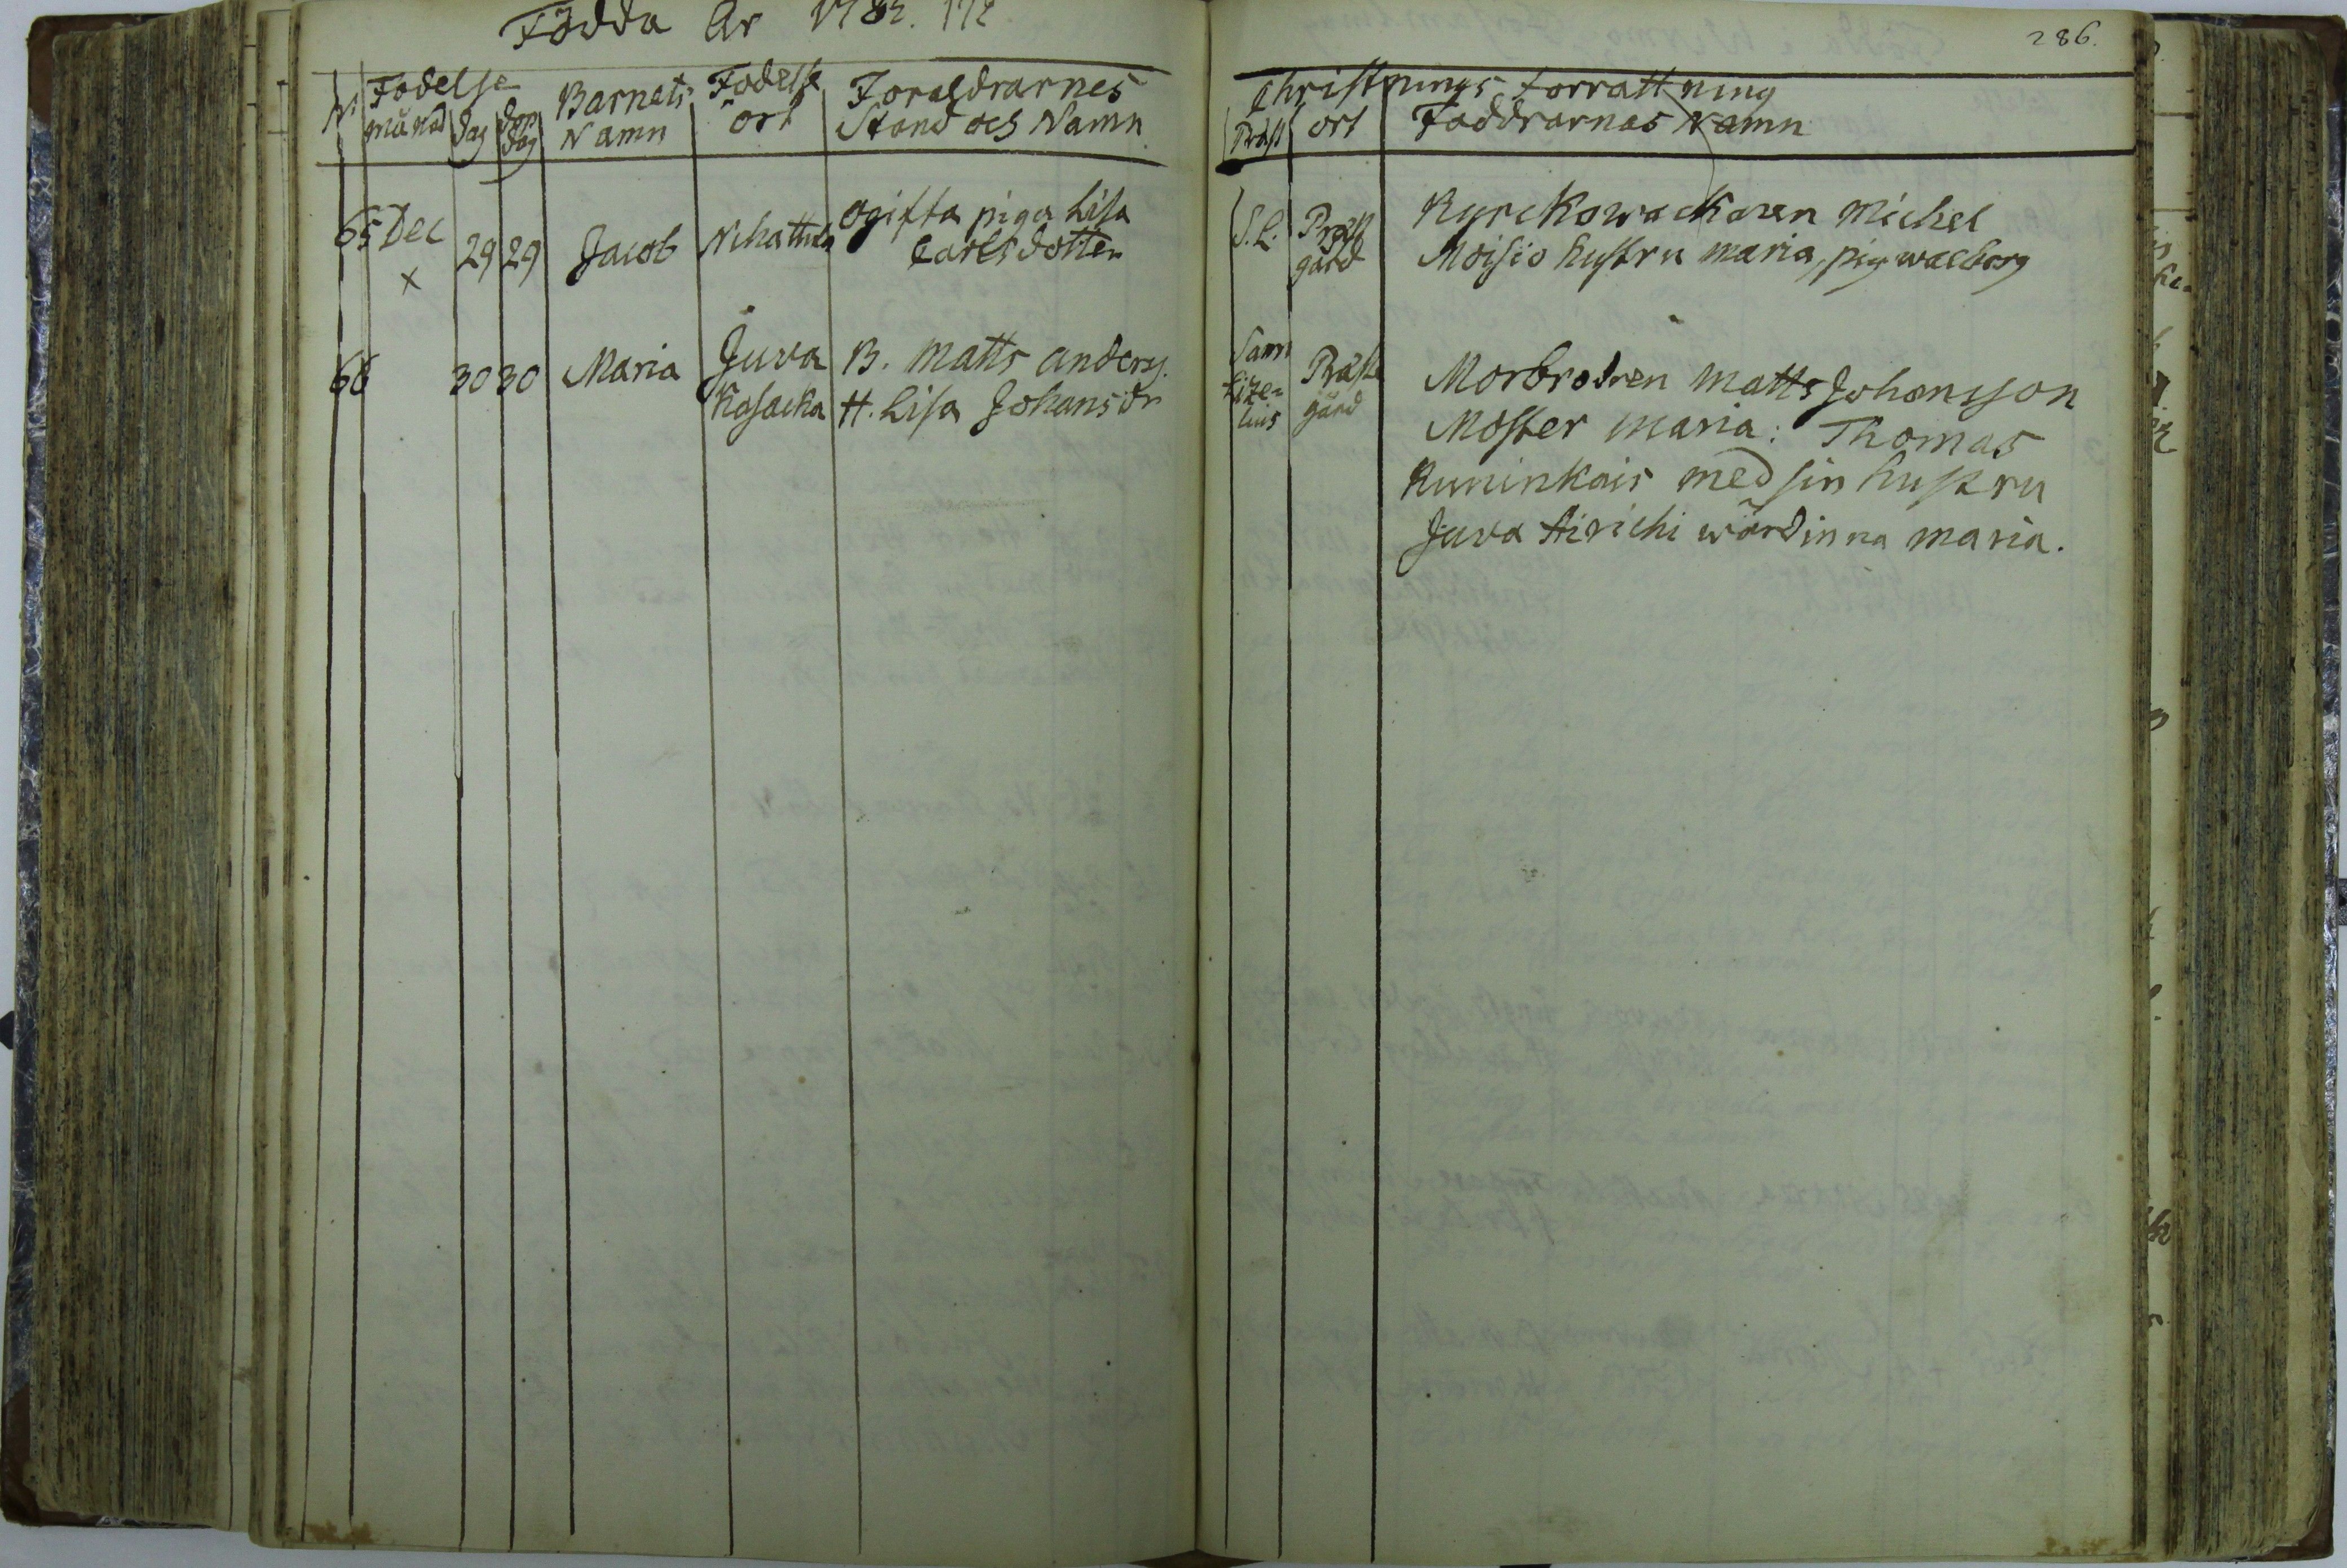 Födda År 1782.
286.
N
Födelse
månad dag dop dag
Barnets Namn
Födelse ort
Foraldrarnes
Stand och Namn
Christnings forrattning
Präst ort Faddrarnas Namn
65 Dec 29 29 Jacob Nihattula ogifta piga Lisa
Carlsdotter
x
S. L. Präst
gård
Kyrckowackaren Michel
Moisio hustru maria, pig walborg
66 30 30 Maria Juva B. Matts anders.
Kasacka H. Lisa Johansdr
Sam
Lize=
lius
Präste
gård
Morbrodren Matts Johansson
Moster maria: Thomas
Kuninkais med sin hustru
Juva Hirichi wärdinna maria.